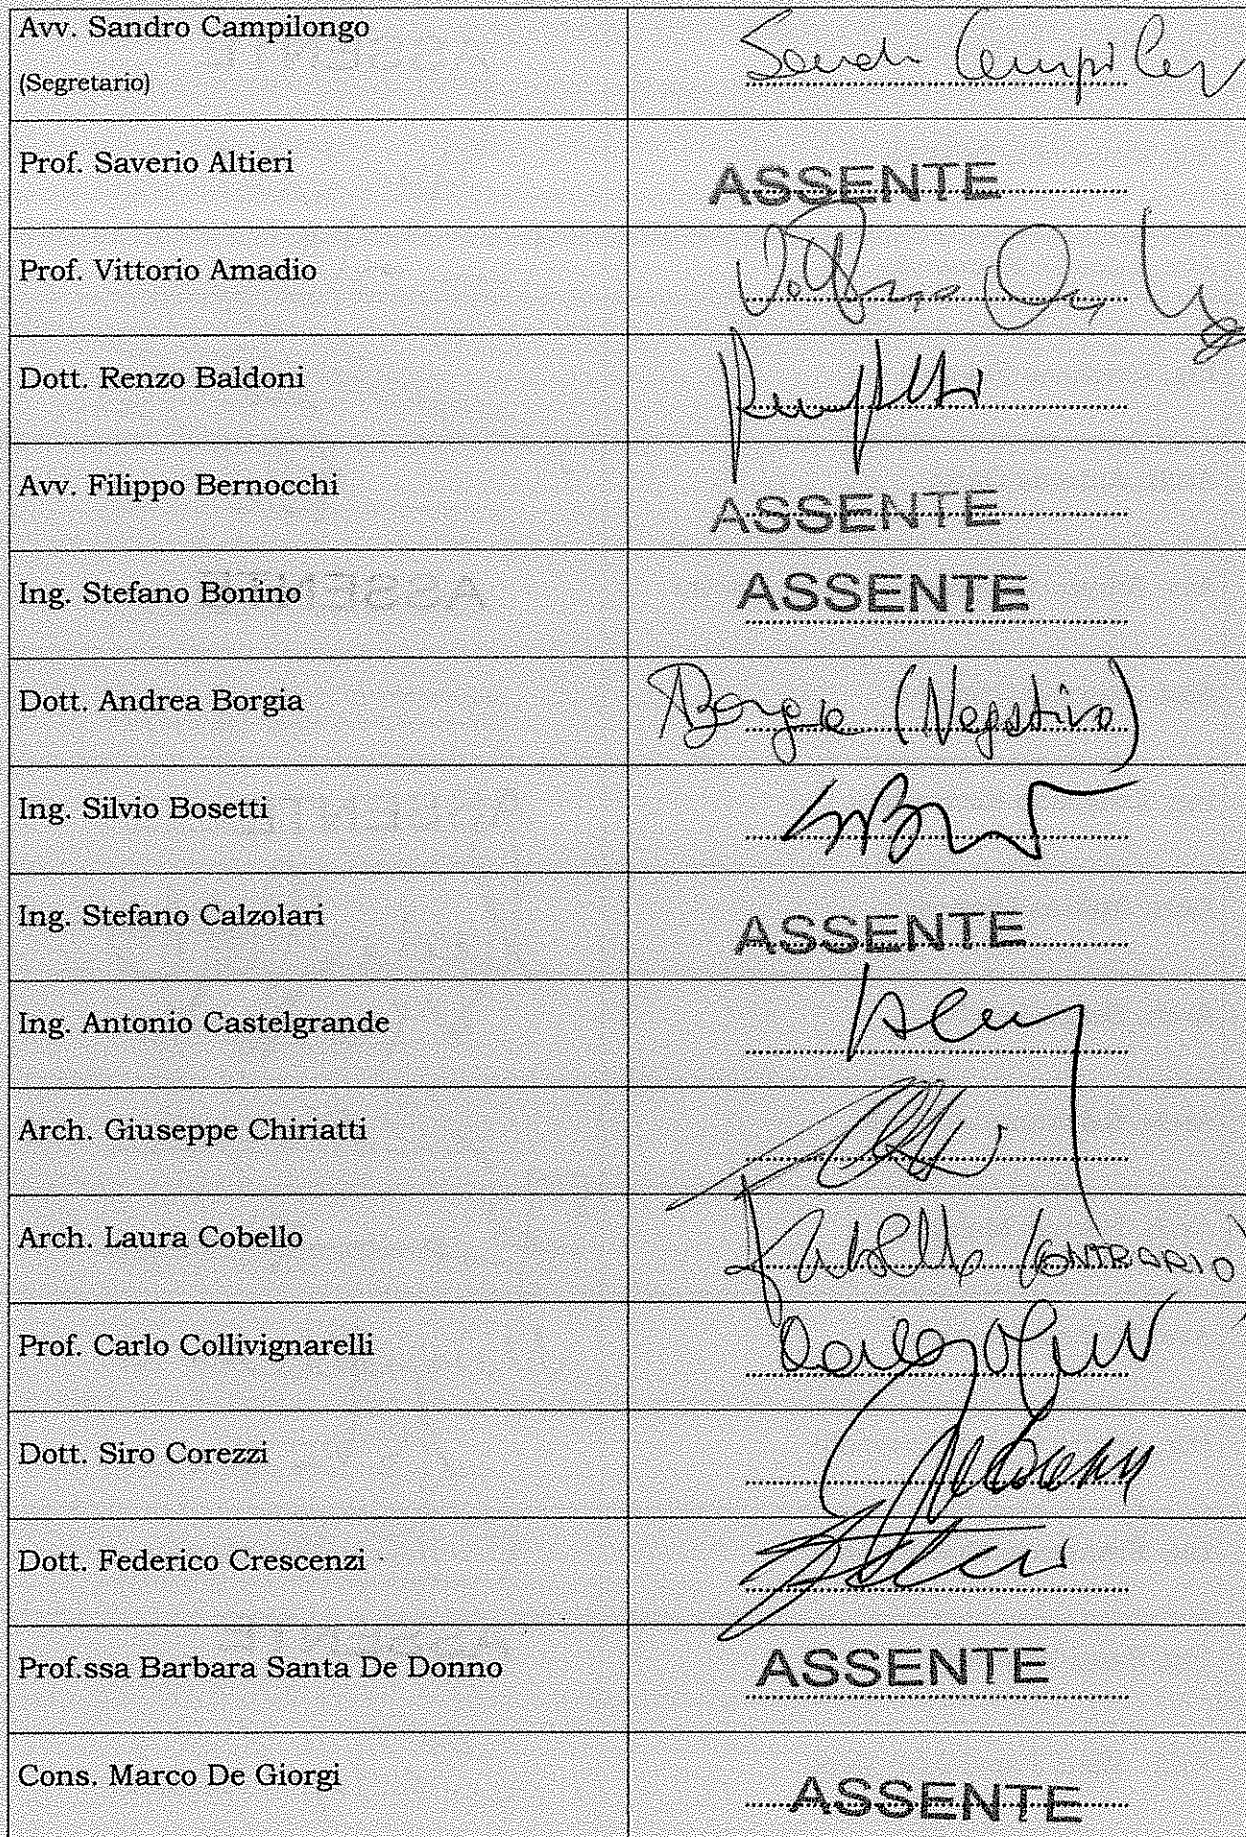 Avv. Sandro Campilongo
(Segretario)
Prof. Saverio Altieri
ASSENTE
Prof. Vittorio Amadio
Dott. Renzo Baldoni
Avv. Filippo Bernocchi
ASSENTE
Ing. Stefano Bonino
ASSENTE
Dott. Andrea Borgia
ABorgia (Negativo)
Ing. Silvio Bosetti
Ing. Stefano Calzolari
ASSENTE
Ing. Antonio Castelgrande
Arch. Giuseppe Chiriatti
Arch. Laura Cobello
(CONTRARIO)
Prof. Carlo Collivignarelli
Dott. Siro Corezzi
Dott. Federico Crescenzi
Prof.ssa Barbara Santa De Donno
ASSENTE
Cons. Marco De Giorgi
ASSENTE